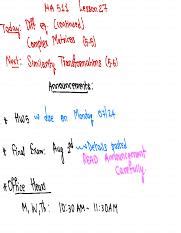 MA 511 Lesson 27
Today: Diff eq. (continued)
Complex Matrices (5.5)
Next: Similarity Transformations (5.6)
Announcements:
* HW5 is due on Monday 07/24
* Final Exam: Aug 3rd → Details posted
READ Announcement
Carefully.
* Office Hours
M, W, Th: 10:30 AM - 11:30 AM